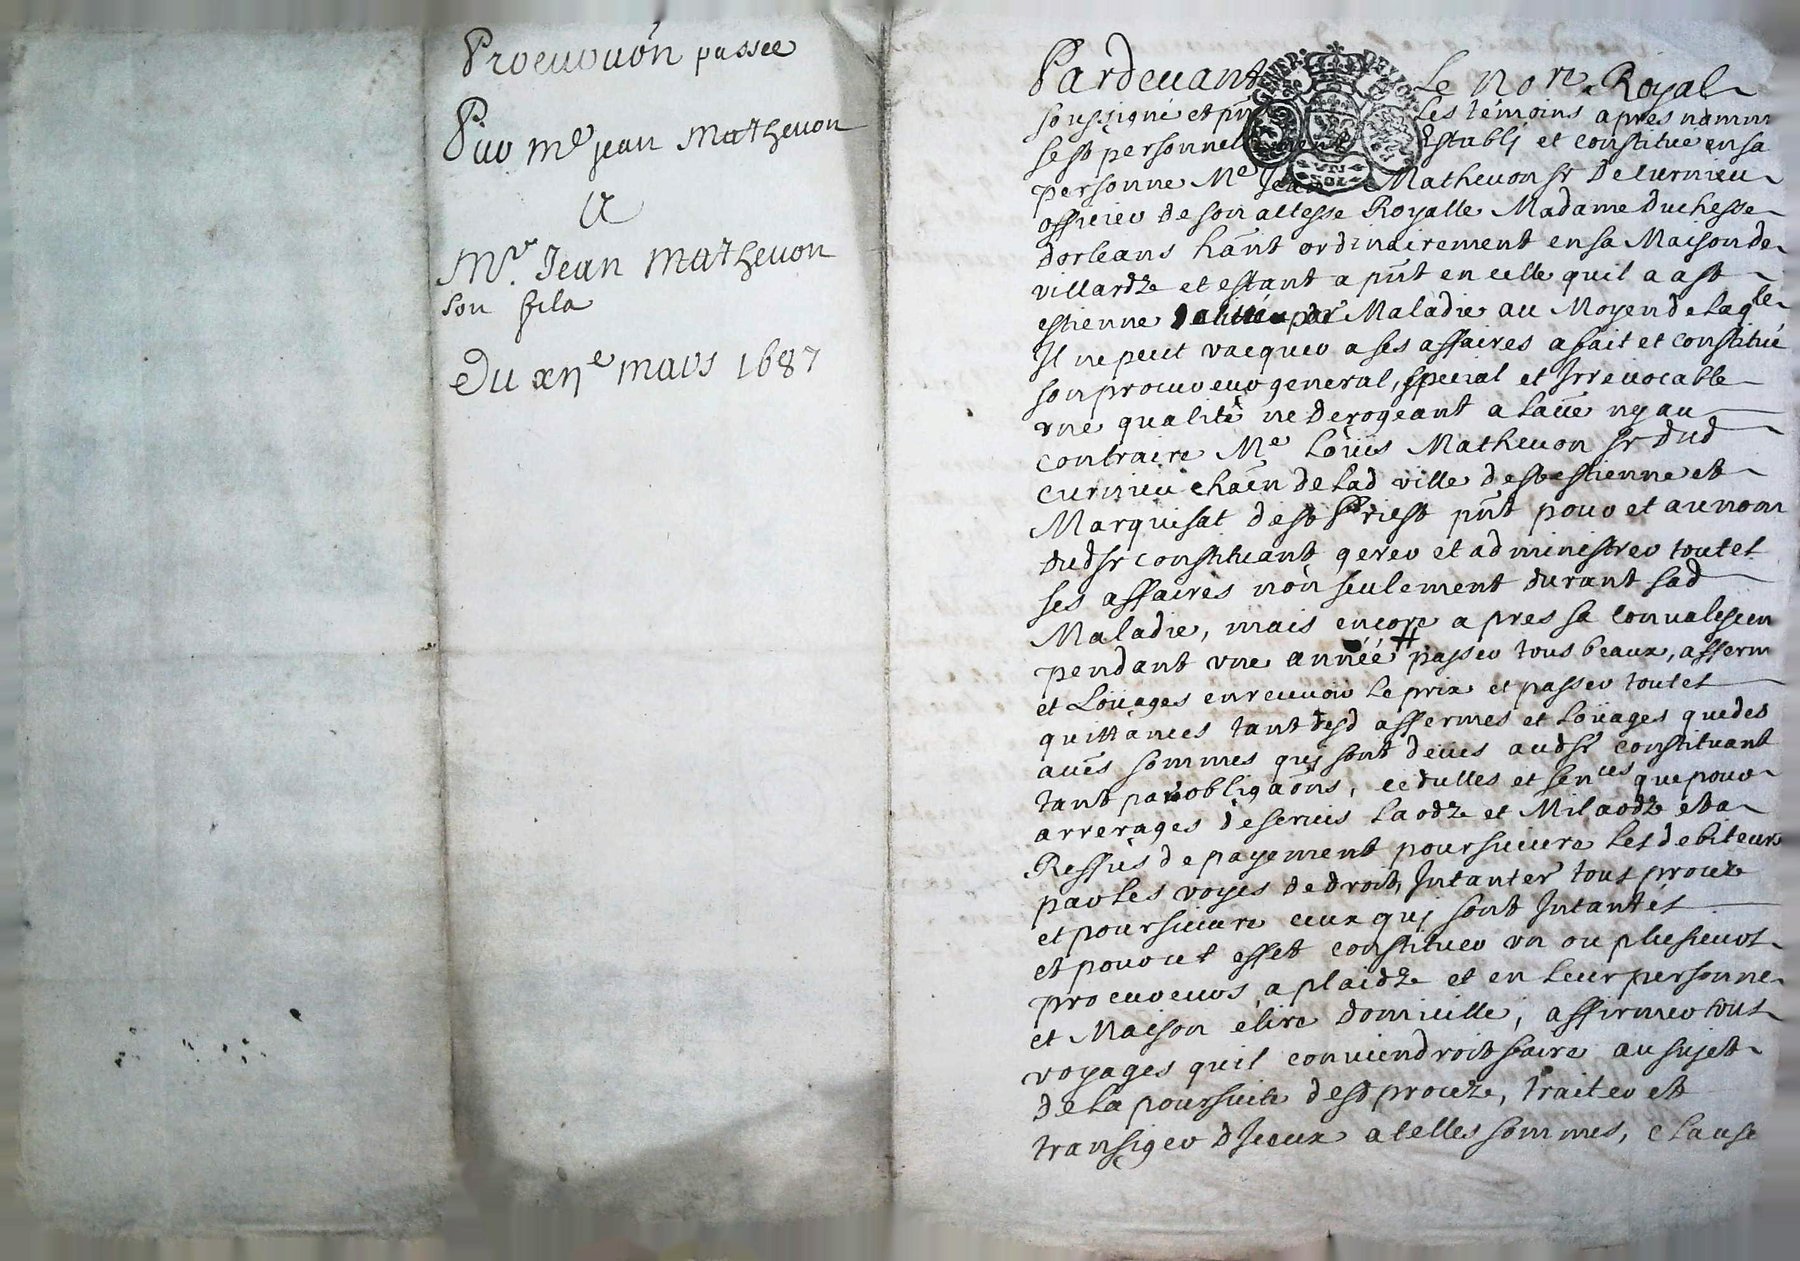 Procuõn passee
Par me jean Mathevon
A
Mr. Jean Mathevon
son fils
Du xije mars 1687
GENER. DE LYON
Pardevant Le Nore. Royal
soussigné et pn̄t Les témoins apres nomm
sest personnellement Establj et constitué en sa
personne Me Jean Mathevon sr De Curnieu
officier de son altesse Royalle Madame Duchesse
dorleans hãnt ordinairement en sa Maison de
villardze et estant a pn̄t en celle quil a a st
estienne par Maladie au Moyen de Laqle
Il ne peut vacquer a ses affaires a fait et constitué
son procureur general, special et Irrevocable
une qualité ne derogeant a Laũe ny au
contraire Me Loüis Mathevon sr dud
Curnieu chãen de Lad ville de st estienne et
Marquisat de st Priest pn̄t pour et au nom
dud sr constituant gerer et administrer toutes
ses affaires non seulement durant sad
Maladie, mais encore apres sa convalescen
pendant une année # passer tous beaux, afferm
et Loüages en recevoir Le prix et passer toutes
quittances tant desd affermes et Loüages que des
aũes sommes quj sont deües aud sr constituant
tant par obligaõns, cedulles et sences que pour
arrerages de servis Laodz et Milaodz et a
Reffus de payement poursuivre Les debiteurs
par Les voyes de droit, Intanter tous procez
et poursuivre ceux quj sont Intantés
et pour cet effet constituer un ou plusieurs
procureurs a plaidz et en Leur personne
et Maison elire domicille, affirmer tous
voyages quil conviendroit faire au sujet
de La poursuite desd procez, traiter et
transiger dIceux a telles sommes, clause